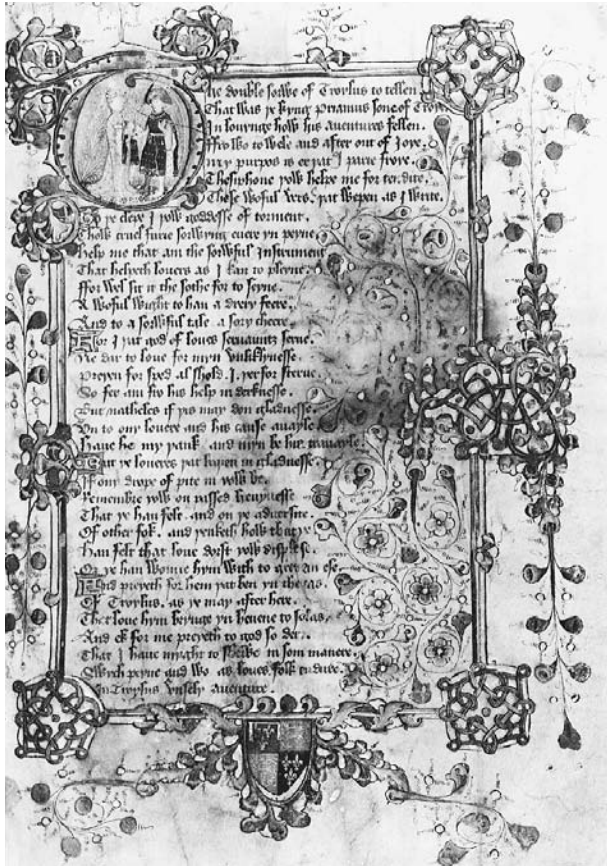 The double sorwe of Troylus to tellen
That was þe kyng Priamus sone of Troye
In louynge how his auentures fellen.
ffro wo to wele and after out of Joye.
my purpos is er þat I parte
Thesiphone yow helpe me for tendite.
These woful vers. þat wepen as I write.
To þe clepe I yow goddesse of torment.
Thow cruel furie sorwyng euere yn peyne.
help me that am the sorwful Instrument
That helpeth louers as I kan to pleyne.
ffor wel sit it the sothe for to seyne.
A woful wight to han a drery feere.
And to a sorwful tale a sory cheere.
For I þat god of loues seruauntz serue.
Ne dar to loue for myn vnliklynesse.
Preyen for sped al shold. I. þerfor sterue.
So fer am fro his help in derknesse.
But natheles if þis may don gladnesse.
Vn to ony louere and his cause auayle.
Haue he my þank and myn be his trauayle.
But ye loueres þat in gladnesse.
If ony drope of pite in yow be.
Remembre yow on passed heuynesse
That ye han felt. and on þe aduersite.
Of other folk. and þenketh how that ye
Han felt that loue dorst yow displese.
Or ye han wonne hym with to gret an ese.
And preyeth for hem þat ben yn the cas.
Of Troylus. as ye may after here.
That loue hym brynge yn heuene to solas.
And ek for me preyeth to god so dere.
That I haue myght to shewe in som manere.
Swich peyne and wo as loues folk endure.
In Troylus vnsely auenture.